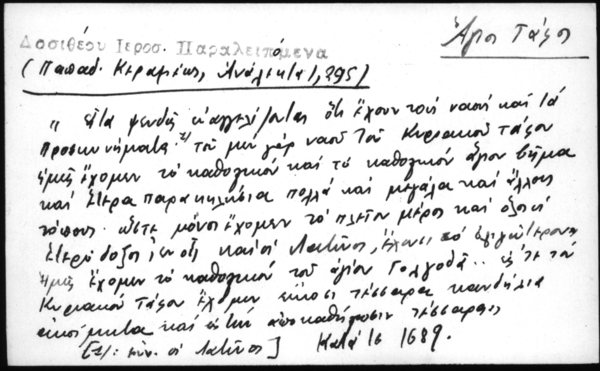 Δοσιθέου Ιεροσ. Παραλειπόμενα
Άγιος Τάφος
(Παπαδ. Κεραμέως, Ανάλεκτα 1, 295)
" Είτα ψευδώς ευαγγελίζονται ότι έχουν τους ναούς και τα
προσκυνήματα 1/ του μεν γαρ ναού του Κυριακού τάφου
ημείς έχομεν το καθολικόν και το καθολικόν άγιον βήμα
και έτερα παρακκλήσια πολλά και μεγάλα και άλλους
τόπους ώστε μόνοι έχομεν το πλείον μέρος και όλοι οι
ετερόδοξοι εν οις και οι Λατίνοι, έχουσι το ολιγώτερον
ημείς έχομεν το καθολικόν του αγίου Γολγοθά .. εις τε τον
Κυριακόν τάφον έχομεν είκοσι τέσσαρα κανδήλια
ακοίμητα και εις την αποκαθήλωσιν τέσσαρες
[1/: ενν. οι Λατίνοι] Κατά το 1689.